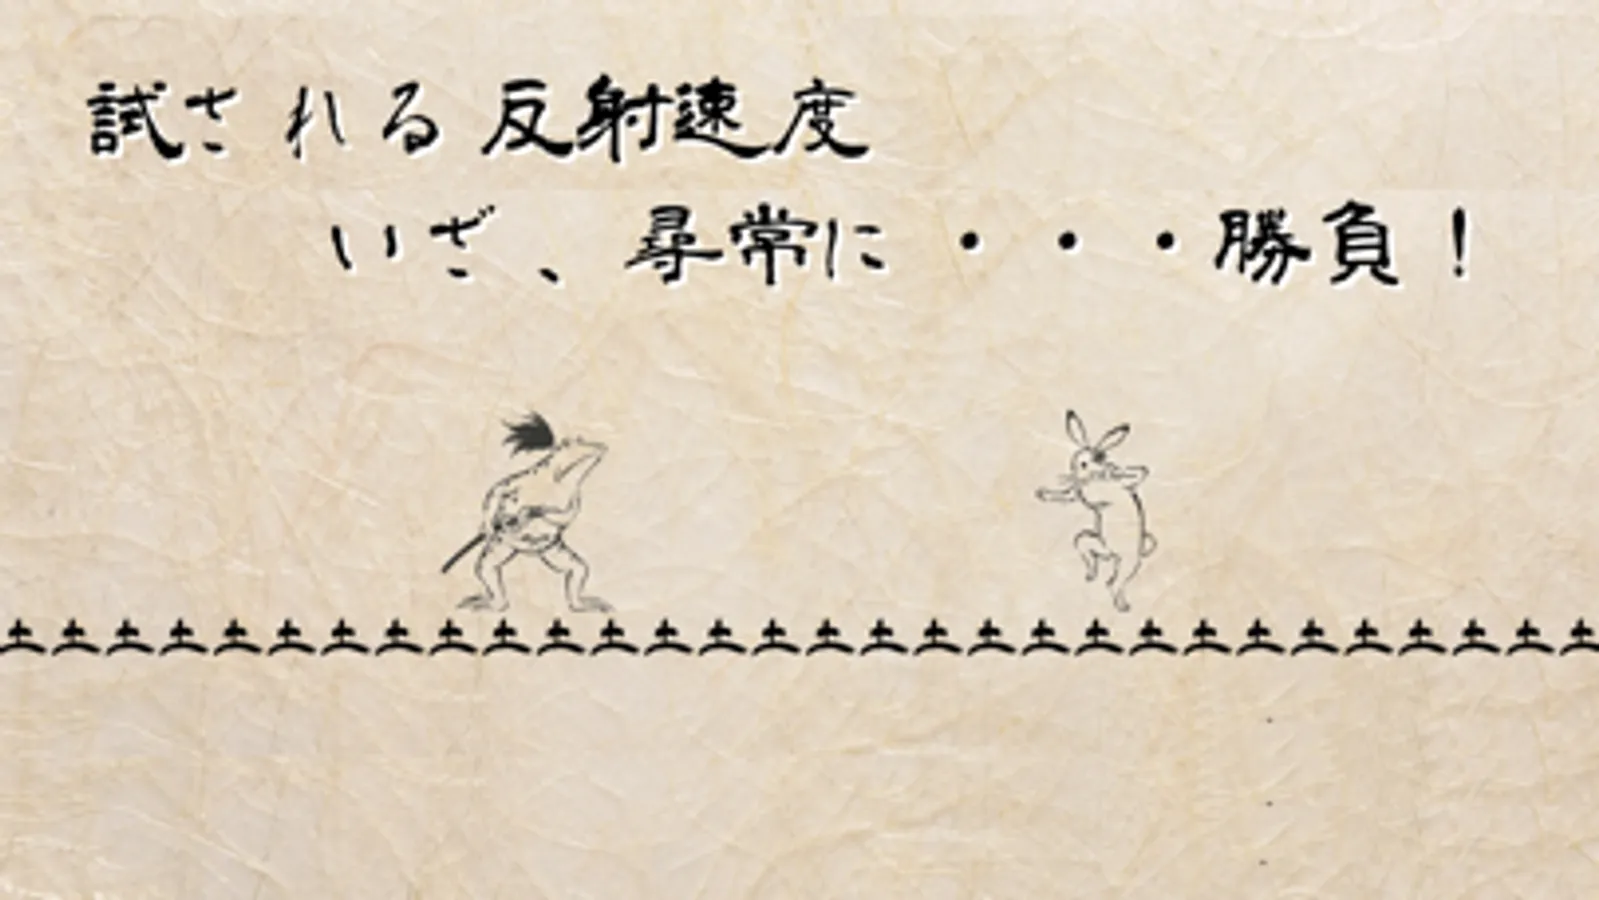 試される反射速度
いざ、尋常に・・・勝負！